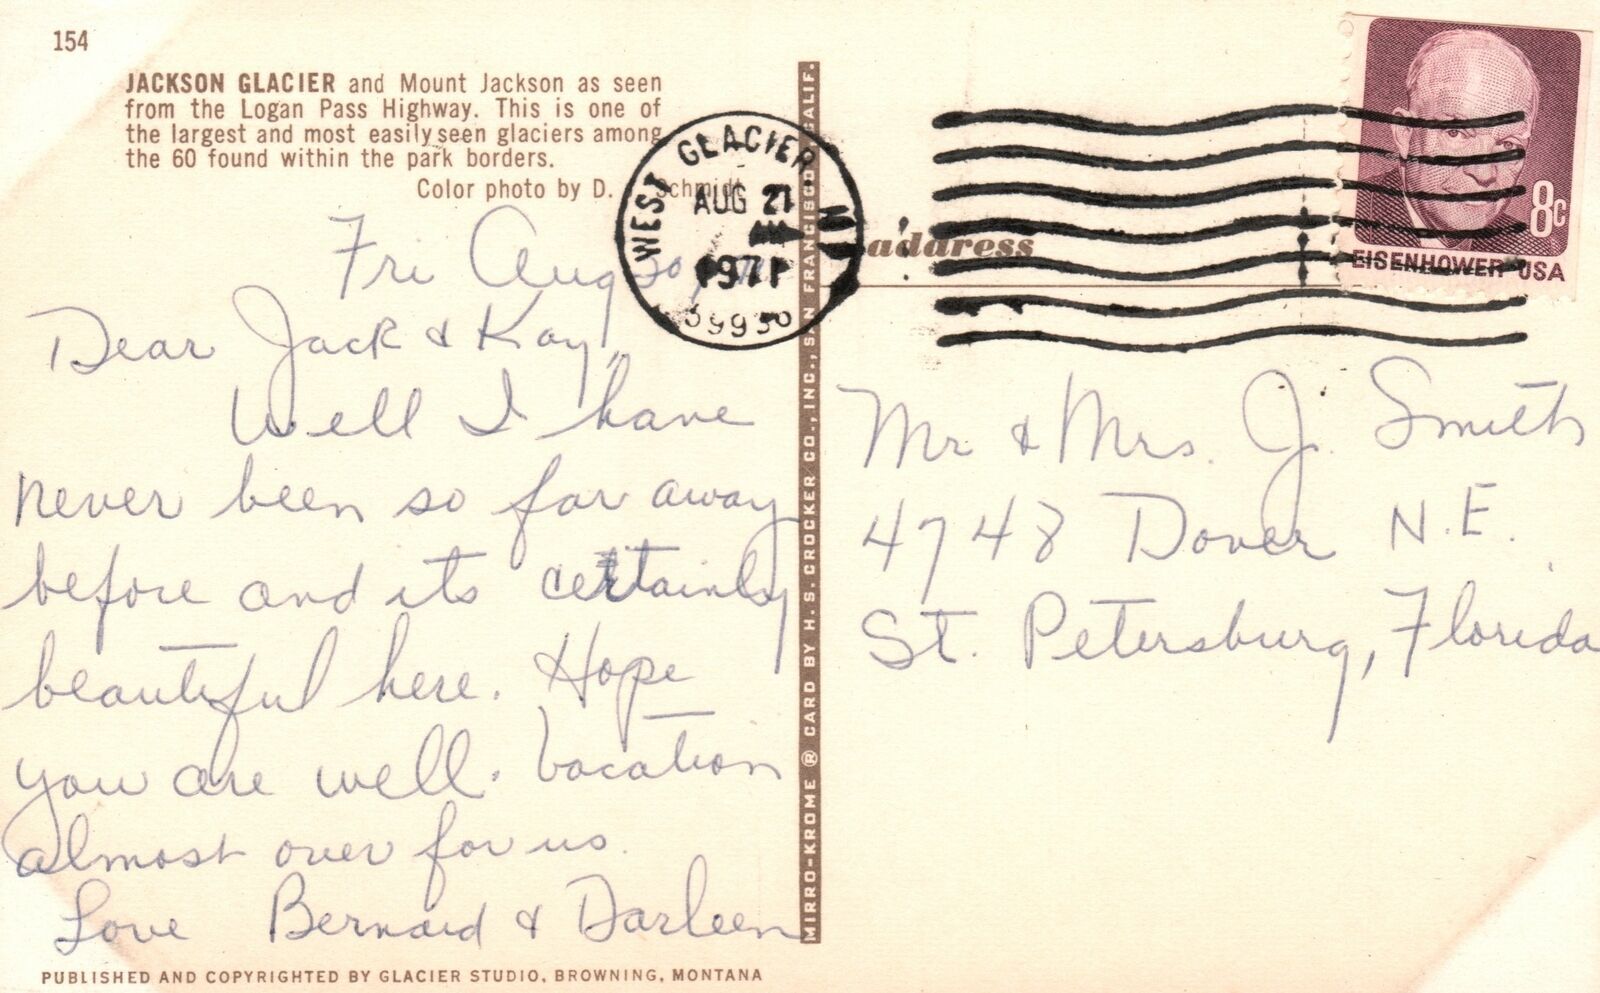 154
JACKSON GLACIER and Mount Jackson as seen
from the Logan Pass Highway. This is one of
the largest and most easily seen glaciers among
the 60 found within the park borders.
Color photo by D. Schmidt
WEST GLACIER MT
AUG 21
1971
59936
address
8c
EISENHOWER USA
Fri Aug 20,
Dear Jack & Kay,
Well I have
never been so far away
before and its certainly
beautiful here. Hope
you are well. Vacation
almost over for us.
Love Bernard & Darleen
Mr & Mrs. J. Smith
4748 Dover N.E.
St. Petersburg, Florida
MIRRO-KROME ® CARD BY H. S. CROCKER CO., INC., SAN FRANCISCO, CALIF.
PUBLISHED AND COPYRIGHTED BY GLACIER STUDIO, BROWNING, MONTANA